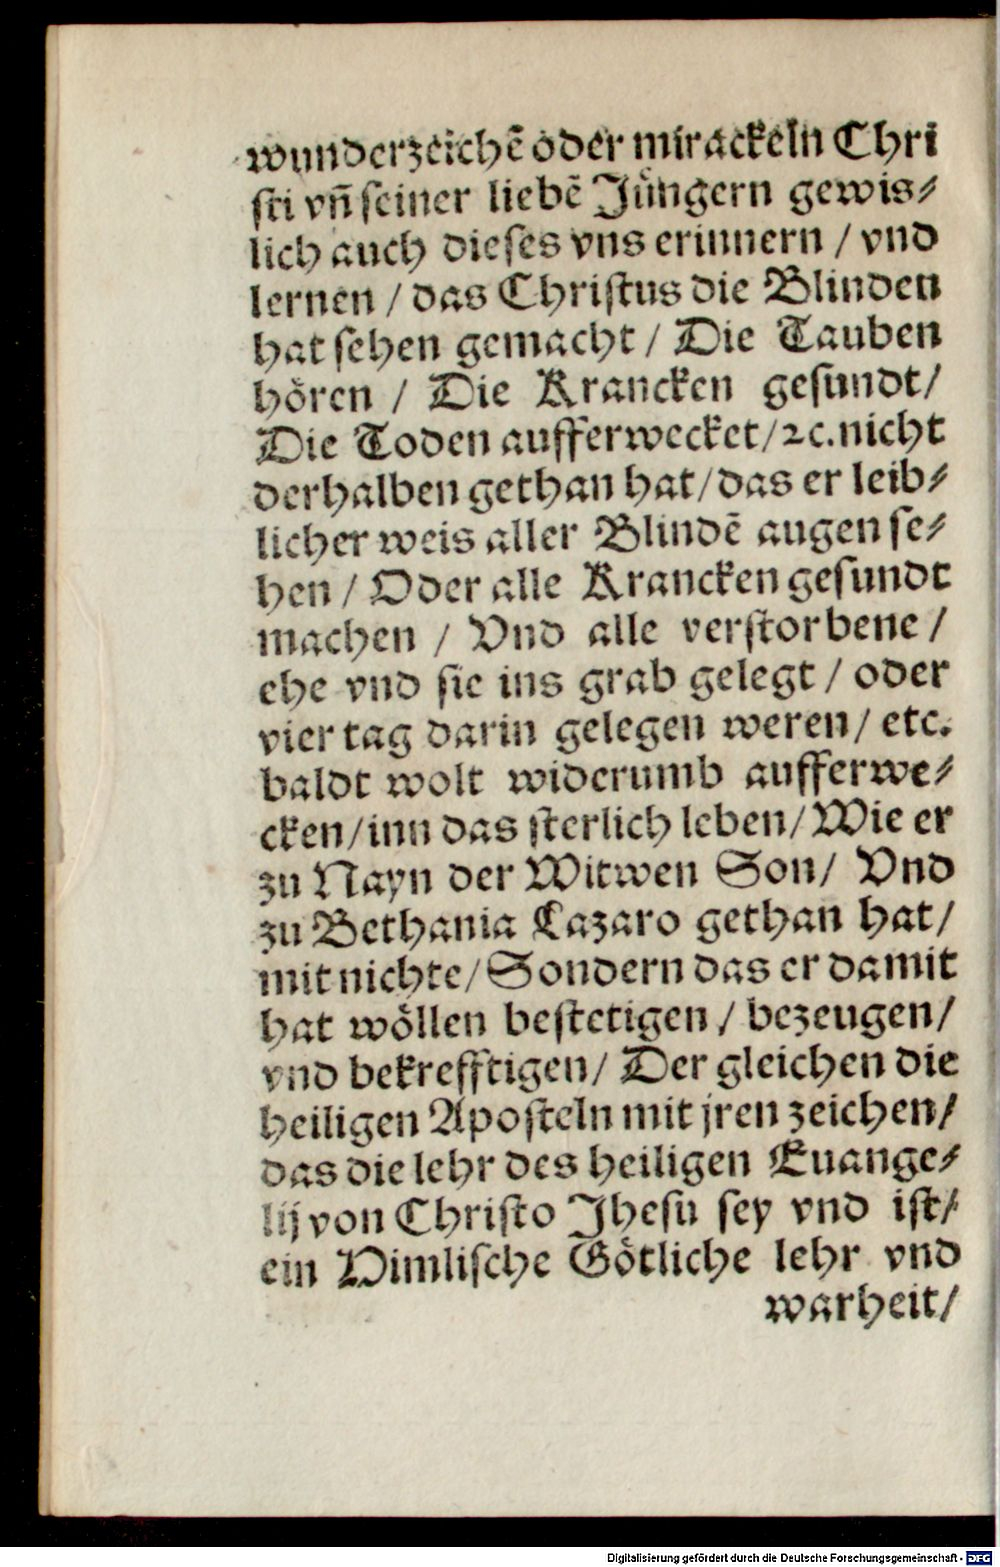 wunderzeichē oder mirackeln Chri
sti vn̄ seiner liebē Jüngern gewis⸗
lich auch dieses vns erinnern / vnd
lernen / das Christus die Blinden
hat sehen gemacht / Die Tauben
hören / Die Krancken gesundt/
Die Toden aufferwecket/ꝛc. nicht
derhalben gethan hat/das er leib⸗
licher weis aller Blindē augen se⸗
hen / Oder alle Krancken gesundt
machen / Vnd alle verstorbene /
ehe vnd sie ins grab gelegt / oder
vier tag darin gelegen weren/ etc.
baldt wolt widerumb aufferwe⸗
cken/inn das sterlich leben/Wie er
zu Nayn der Witwen Son/ Vnd
zu Bethania Lazaro gethan hat/
mit nichte/Sondern das er damit
hat wöllen bestetigen / bezeugen/
vnd bekrefftigen/ Der gleichen die
heiligen Aposteln mit jren zeichen/
das die lehr des heiligen Euange⸗
lij von Christo Jhesu sey vnd ist/
ein Himlische Götliche lehr vnd
warheit/
Digitalisierung gefördert durch die Deutsche Forschungsgemeinschaft - DFG